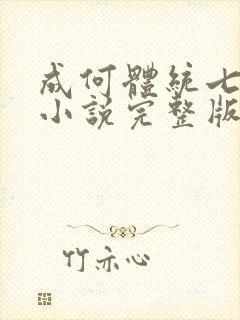 成何體統七
小說完整版
竹亦心